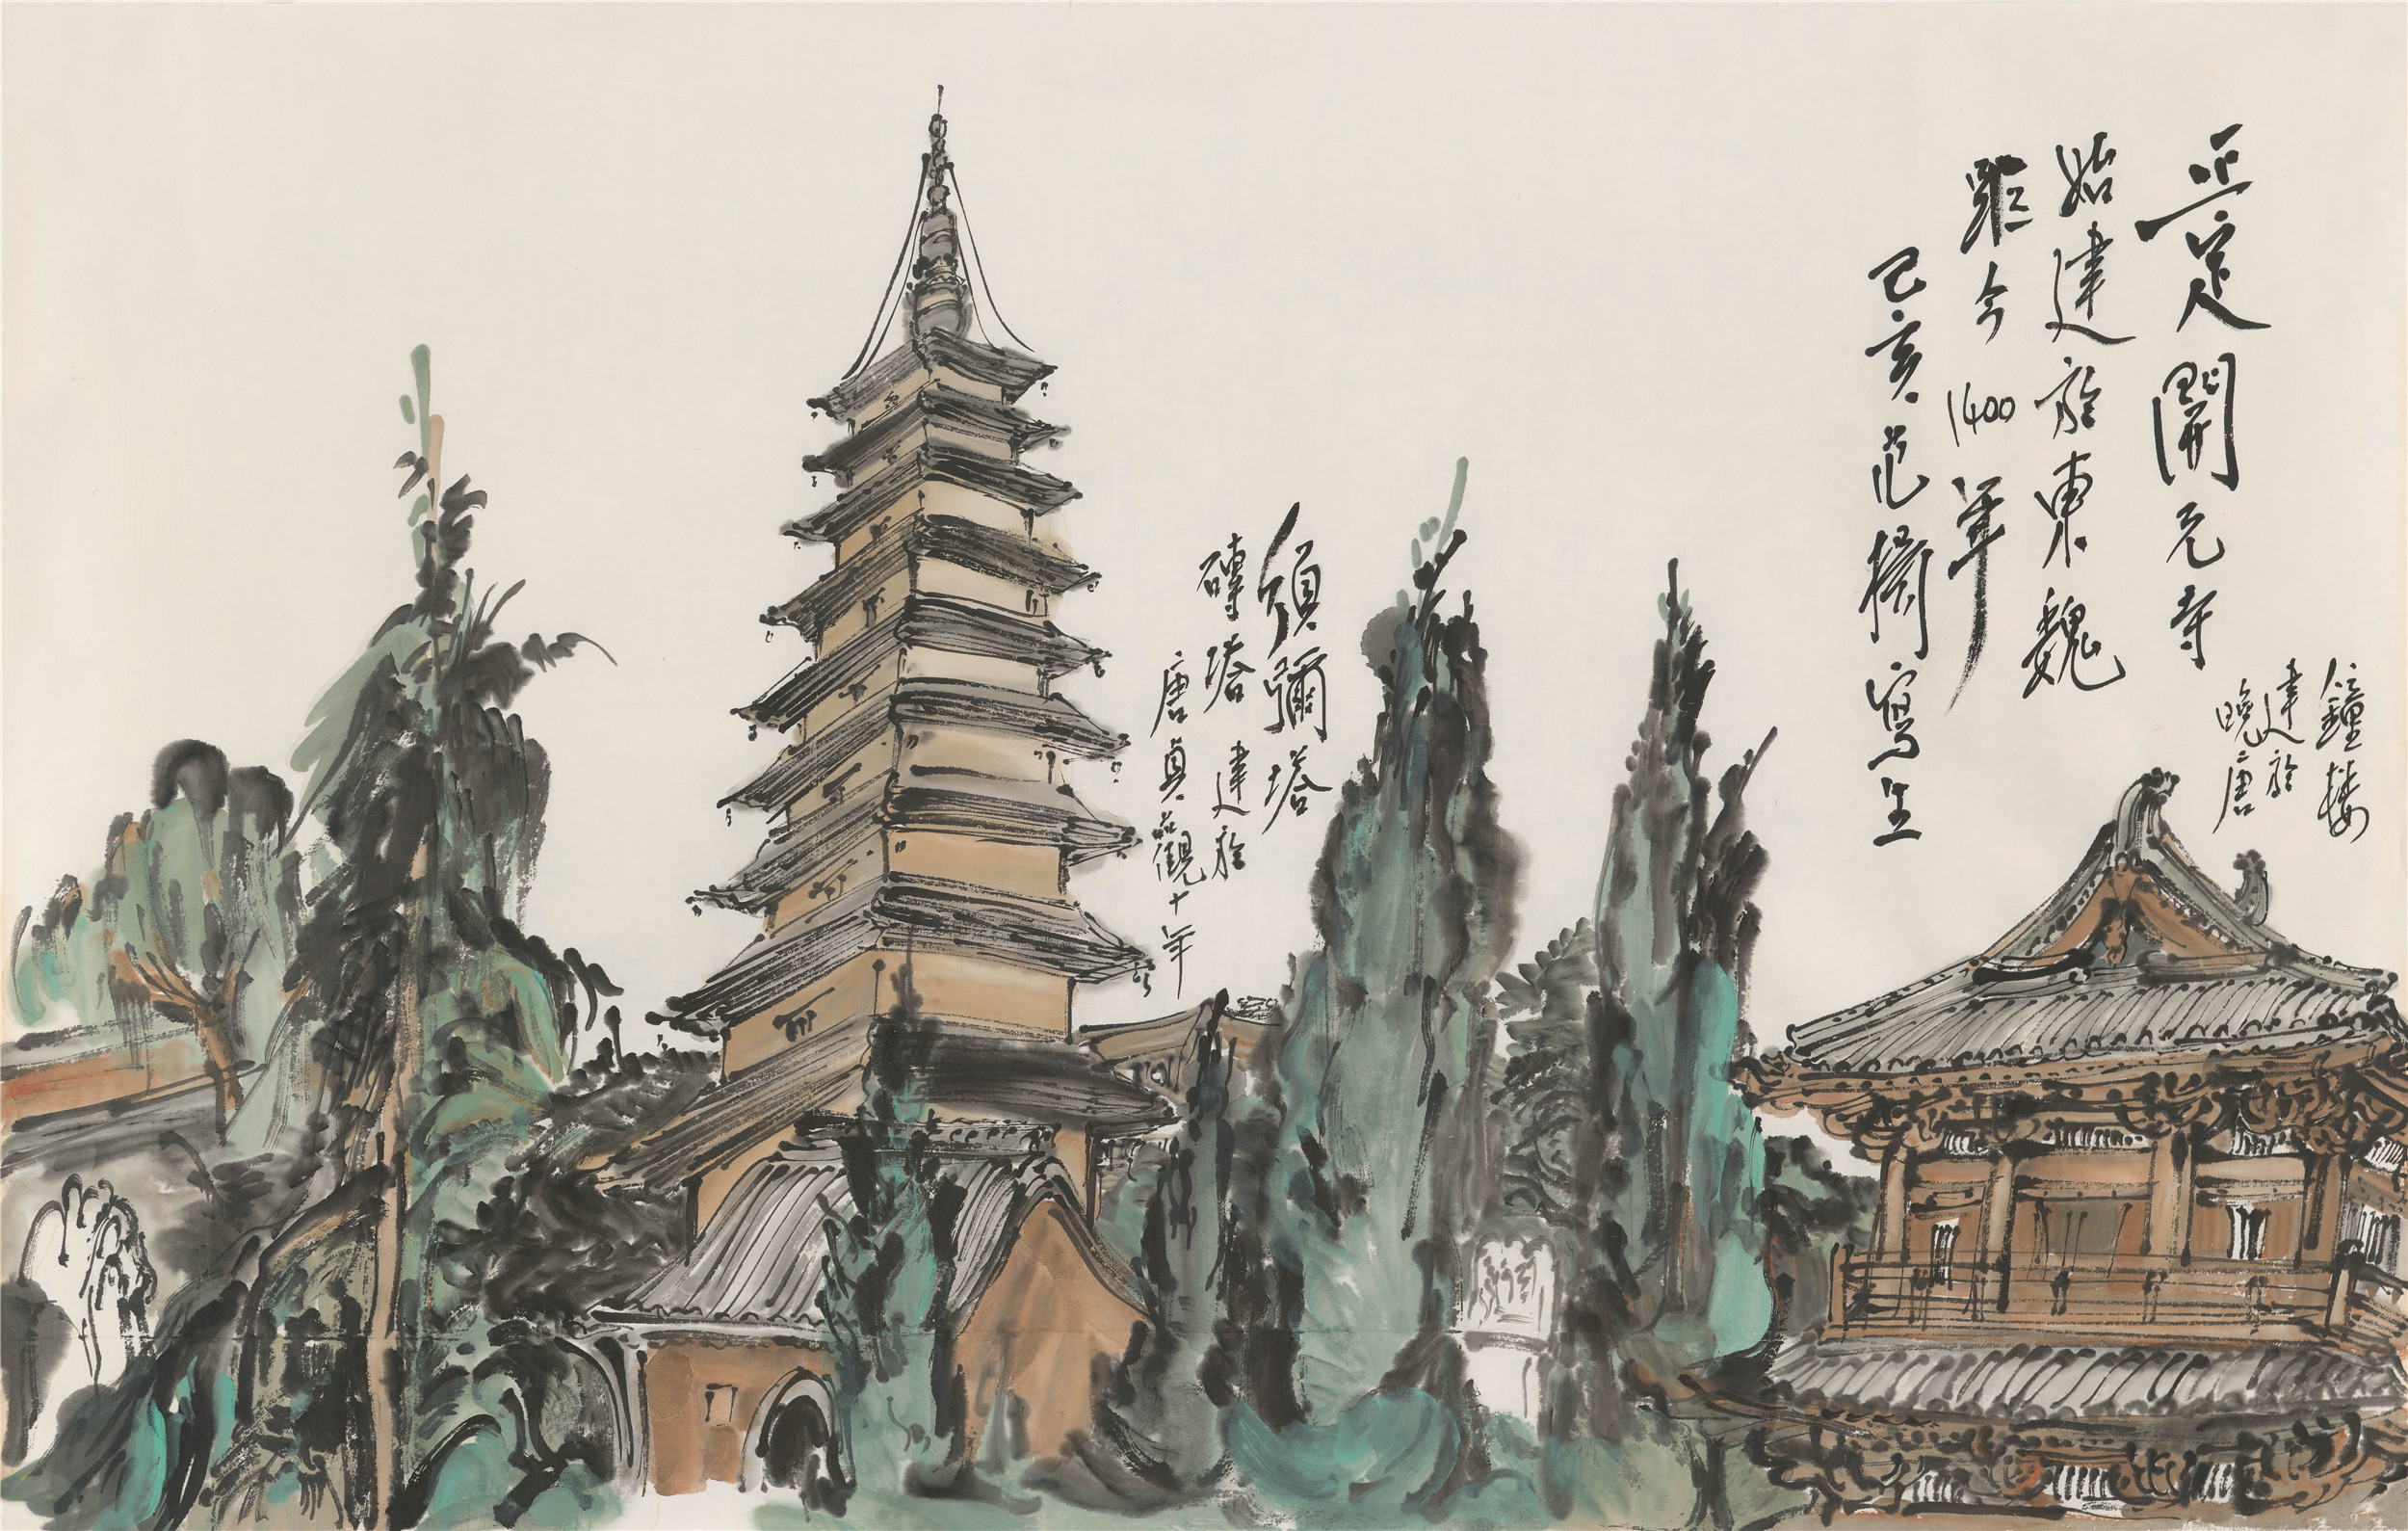 正定開元寺
始建於東魏
距今1400年
己亥范揚寫生
鐘樓
建於
晚唐
須彌塔
磚塔建於
唐貞觀十年